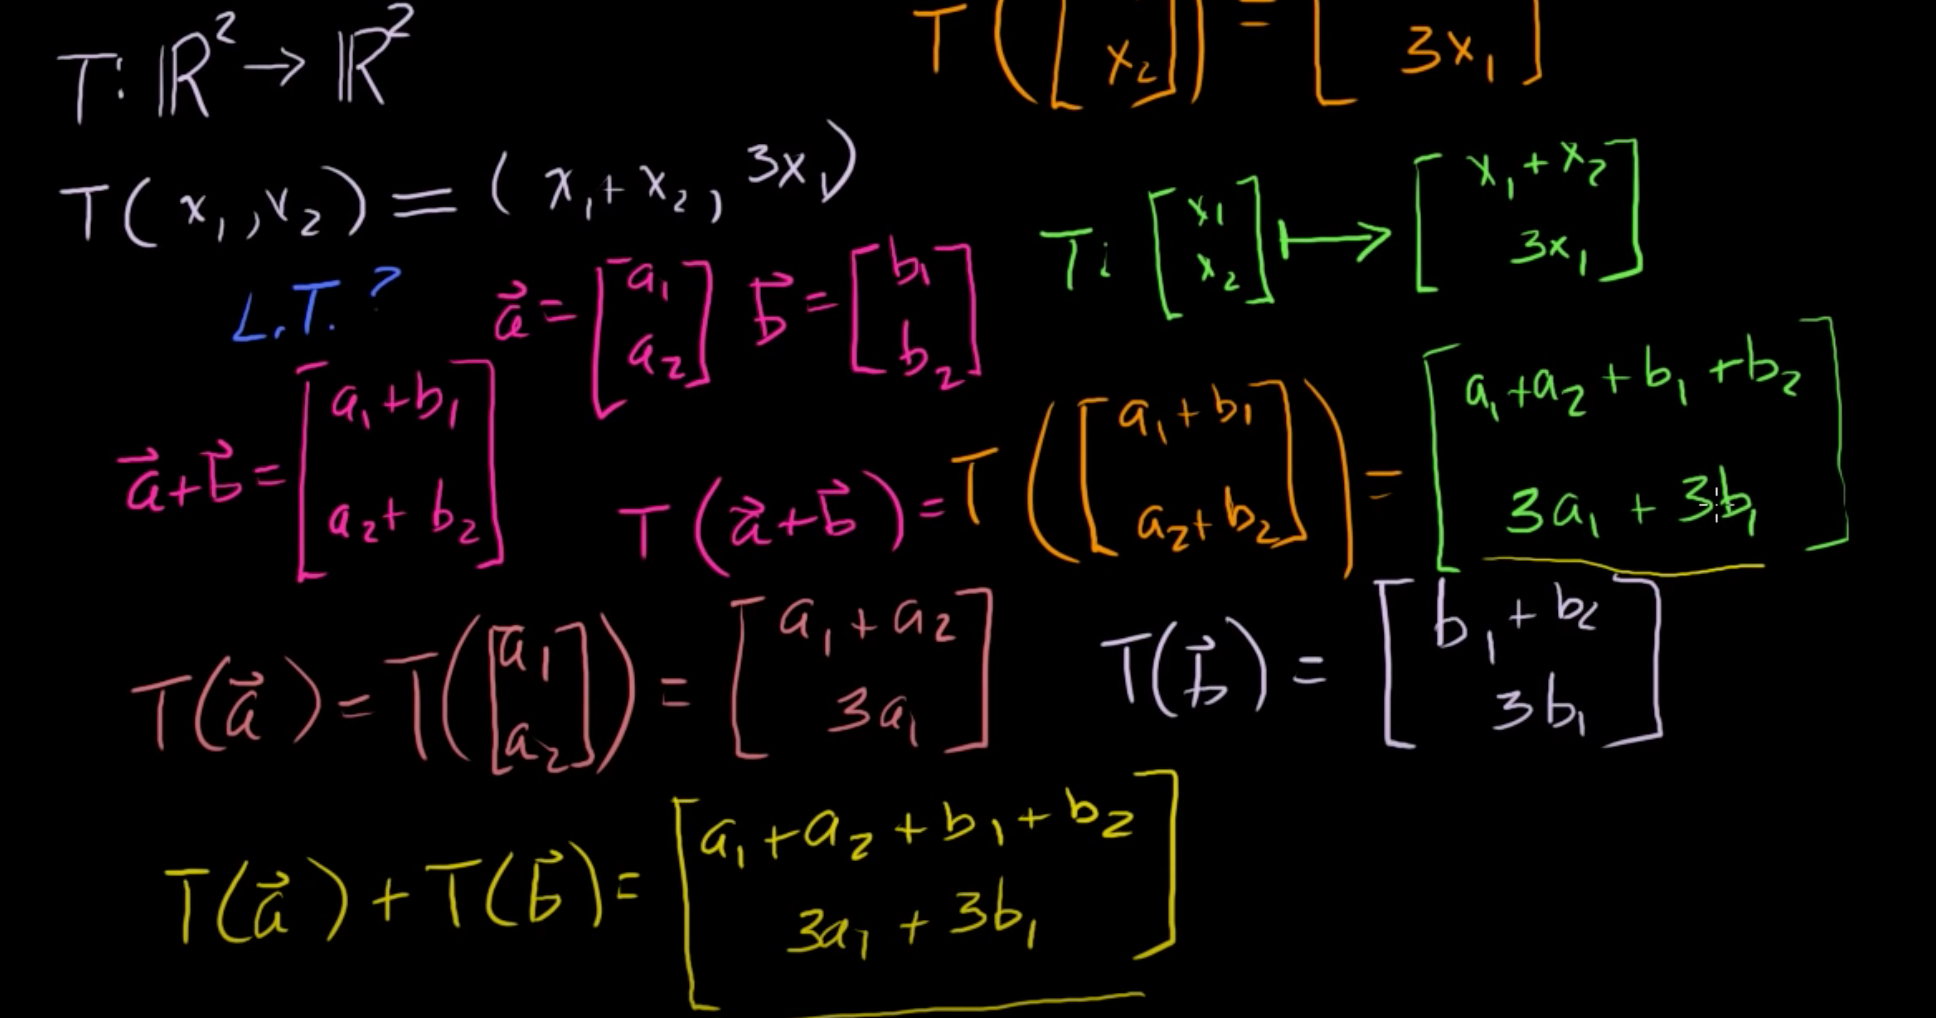 T: ℝ² → ℝ²
T([ x₂]) = [ 3x₁]
T(x₁, x₂) = (x₁ + x₂, 3x₁)
T: [x₁ x₂] ↦ [x₁ + x₂ 3x₁]
L.T.?
a⃗ = [a₁ a₂] b⃗ = [b₁ b₂]
a⃗ + b⃗ = [a₁ + b₁ a₂ + b₂]
T(a⃗ + b⃗) = T([a₁ + b₁ a₂ + b₂]) = [a₁ + a₂ + b₁ + b₂ 3a₁ + 3b₁]
T(a⃗) = T([a₁ a₂]) = [a₁ + a₂ 3a₁]
T(b⃗) = [b₁ + b₂ 3b₁]
T(a⃗) + T(b⃗) = [a₁ + a₂ + b₁ + b₂ 3a₁ + 3b₁]